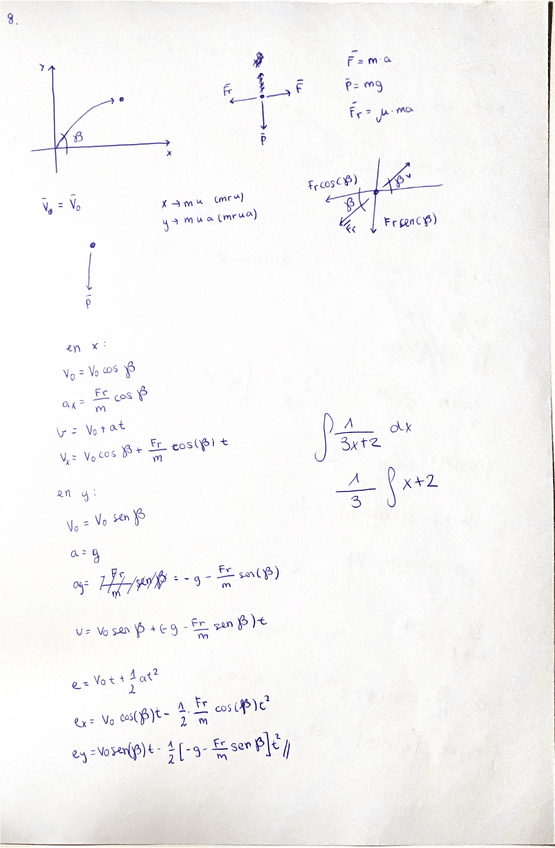 8.
y
β
x
F̄r
F̄
P̄
F̄ = m·a
P̄ = mg
F̄r = μ·ma
V̄₀ = V̄₀
x → mu (mru)
y → mua (mrua)
Fr cos(β)
β
v
β
F̄r
Fr sen(β)
P̄
en x:
V₀ = V₀ cos β
aₓ = Fr/m cos β
v = V₀ + at
Vₓ = V₀ cos β + Fr/m cos(β) t
∫ 1/(3x+2) dx
1/3 ∫ x+2
en y:
V₀ = V₀ sen β
a = g
ay = = -g - Fr/m sen(β)
v = V₀ sen β + (-g - Fr/m sen β) t
e = V₀t + 1/2 at²
eₓ = V₀ cos(β)t - 1/2 · Fr/m cos(β) t²
ey = V₀ sen(β) t - 1/2 [-g - Fr/m sen β] t² //